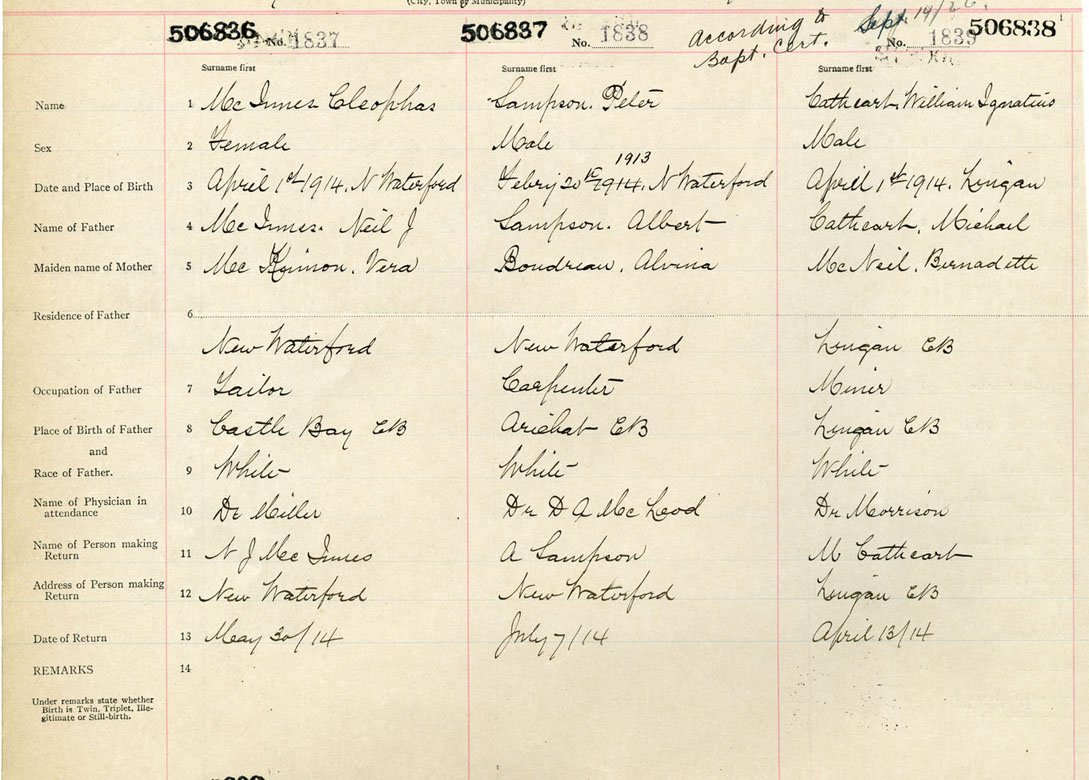 (City, Town or Municipality)
506836 No. 1837
506837 No. 1838
According to
Bapt. Cert.
Sept. 14/26.
No. 1839 506838
Surname first Surname first Surname first
Name 1 Mc Innes Cleophas Sampson. Peter Cathcart, William Ignatius
Sex 2 Female Male Male
1913
Date and Place of Birth 3 April 1st 1914. N Waterford Febry 20th 1914. N Waterford April 1st 1914. Lingan
Name of Father 4 Mc Innes. Neil J Sampson. Albert Cathcart, Michael
Maiden name of Mother 5 Mc Kinnon, Vera Boudreau, Alvina McNeil, Bernadette
Residence of Father 6
New Waterford New Waterford Lingan CB
Occupation of Father 7 Tailor Carpenter Miner
Place of Birth of Father 8 Castle Bay CB Arichat CB Lingan CB
and
Race of Father. 9 White White White
Name of Physician in
attendance 10 Dr Miller Dr D A Mc Leod Dr Morrison
Name of Person making
Return 11 N J Mc Innes A Sampson M Cathcart
Address of Person making
Return 12 New Waterford New Waterford Lingan CB
Date of Return 13 May 30/14 July 7/14 April 13/14
REMARKS 14
Under remarks state whether
Birth is Twin, Triplet, Ille-
gitimate or Still-birth.